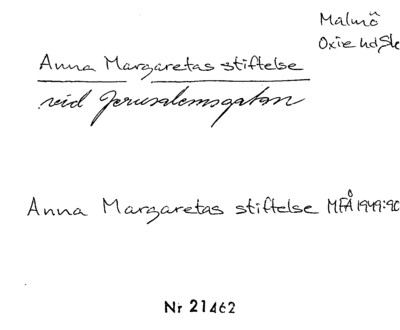 Malmö
Oxie hd Sk
Anna Margaretas stiftelse
vid Jerusalemsgatan
Anna Margaretas stiftelse MFÅ 1949:90
Nr 21462